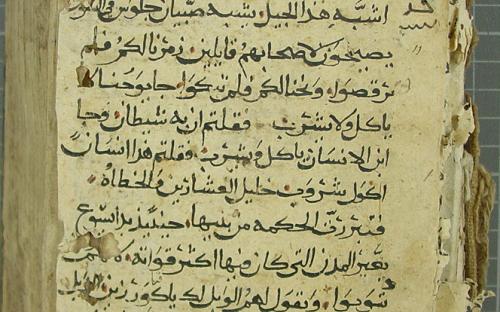 اشبه هذا الجيل يشبه صبيان جلوس في السوق
يصيحون لاصحابهم قايلين زمرنا لكم فلم
ترقصوا ونحنا لكم فلم تبكوا جا يوحنا لا
ياكل ولا يشرب فقلتم ان به شيطان وجا
ابن الانسان ياكل ويشرب فقلتم هذا انسان
اكول شروب خليل العشارين والخطاه
فتبررت الحكمه من بنيها حينيذ بدا يسوع
يعير المدن التي كان فيها اكثر قواته
يتوبوا ويقول لهم الويل لك ياكورزين الويل